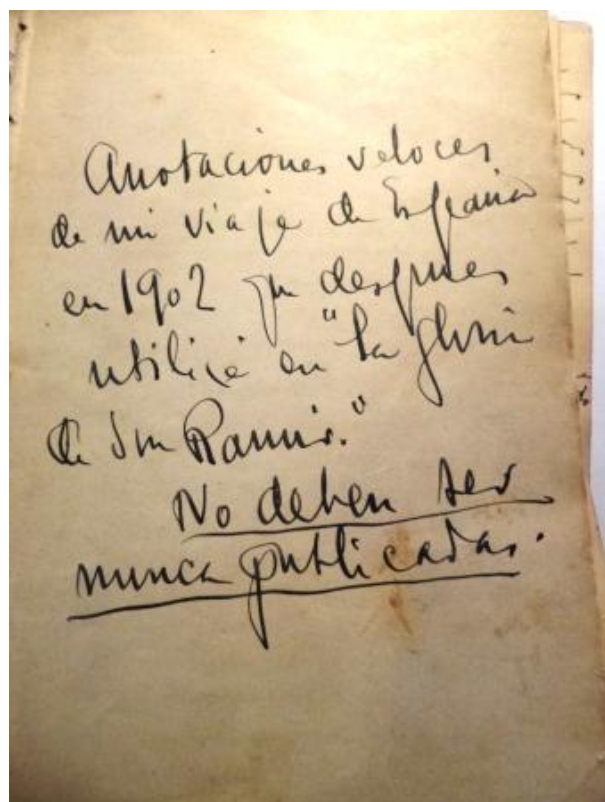 Anotaciones veloces
de mi viaje de España
en 1902 que despues
utilicé en "La gloria
de Don Ramiro."
No deben ser
nunca publicadas.